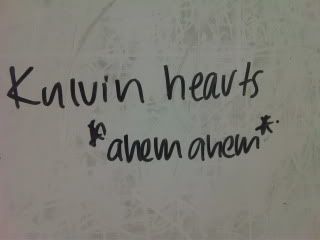 Kulvin hearts
*ahem ahem*